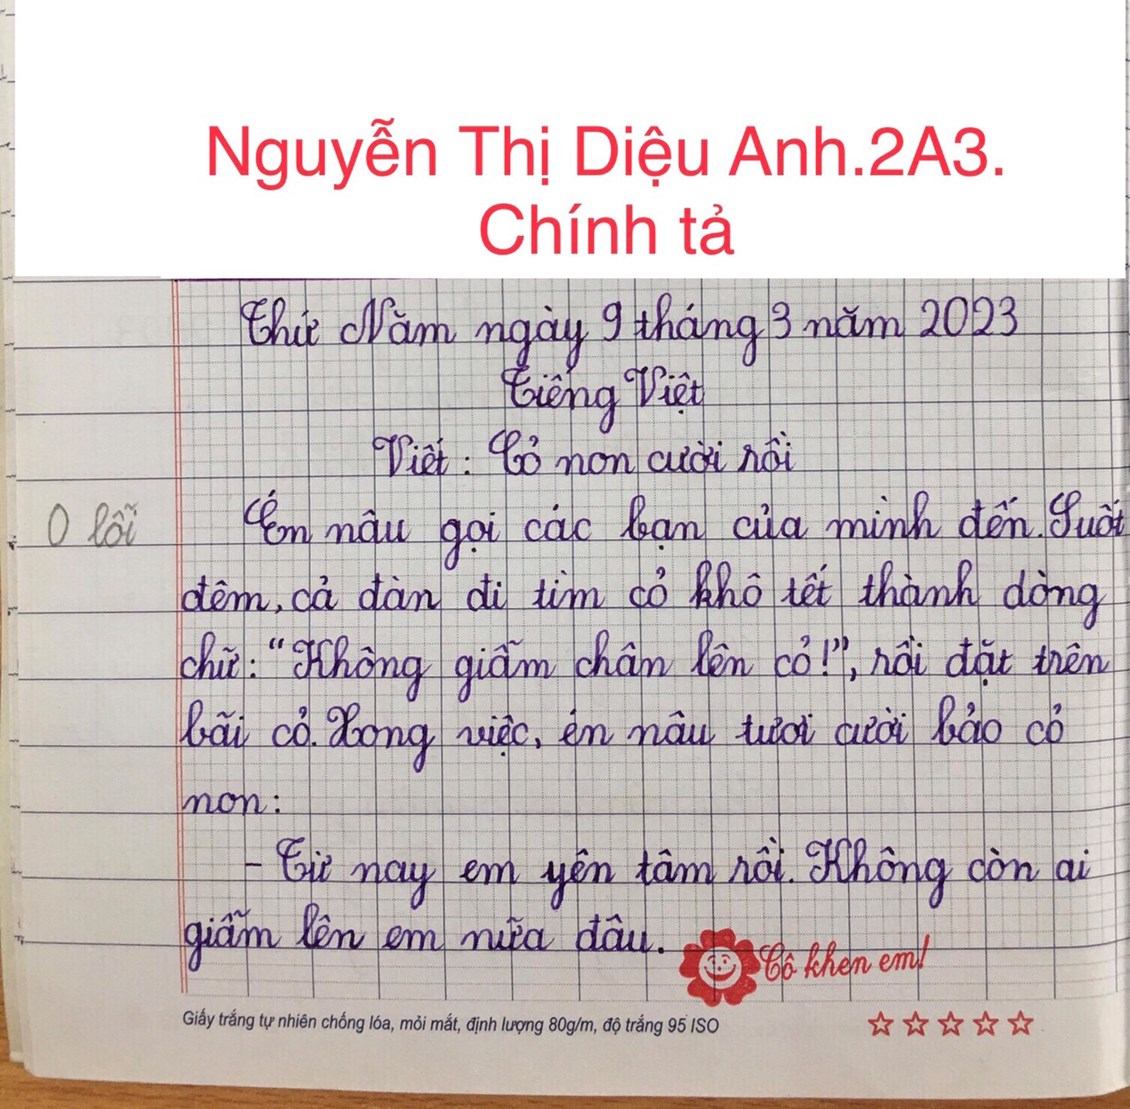 Nguyễn Thị Diệu Anh.2A3.
Chính tả
Thứ Năm ngày 9 tháng 3 năm 2023
Tiếng Việt
Viết : Cỏ non cười rồi
0 lỗi
Én nâu gọi các bạn của mình đến. Suốt
đêm, cả đàn đi tìm cỏ khô tết thành dòng
chữ: "Không giẫm chân lên cỏ!", rồi đặt trên
bãi cỏ. Xong việc, én nâu tươi cười bảo cỏ
non:
- Từ nay em yên tâm rồi. Không còn ai
giẫm lên em nữa đâu.
Cô khen em!
Giấy trắng tự nhiên chống lóa, mỏi mắt, định lượng 80g/m, độ trắng 95 ISO